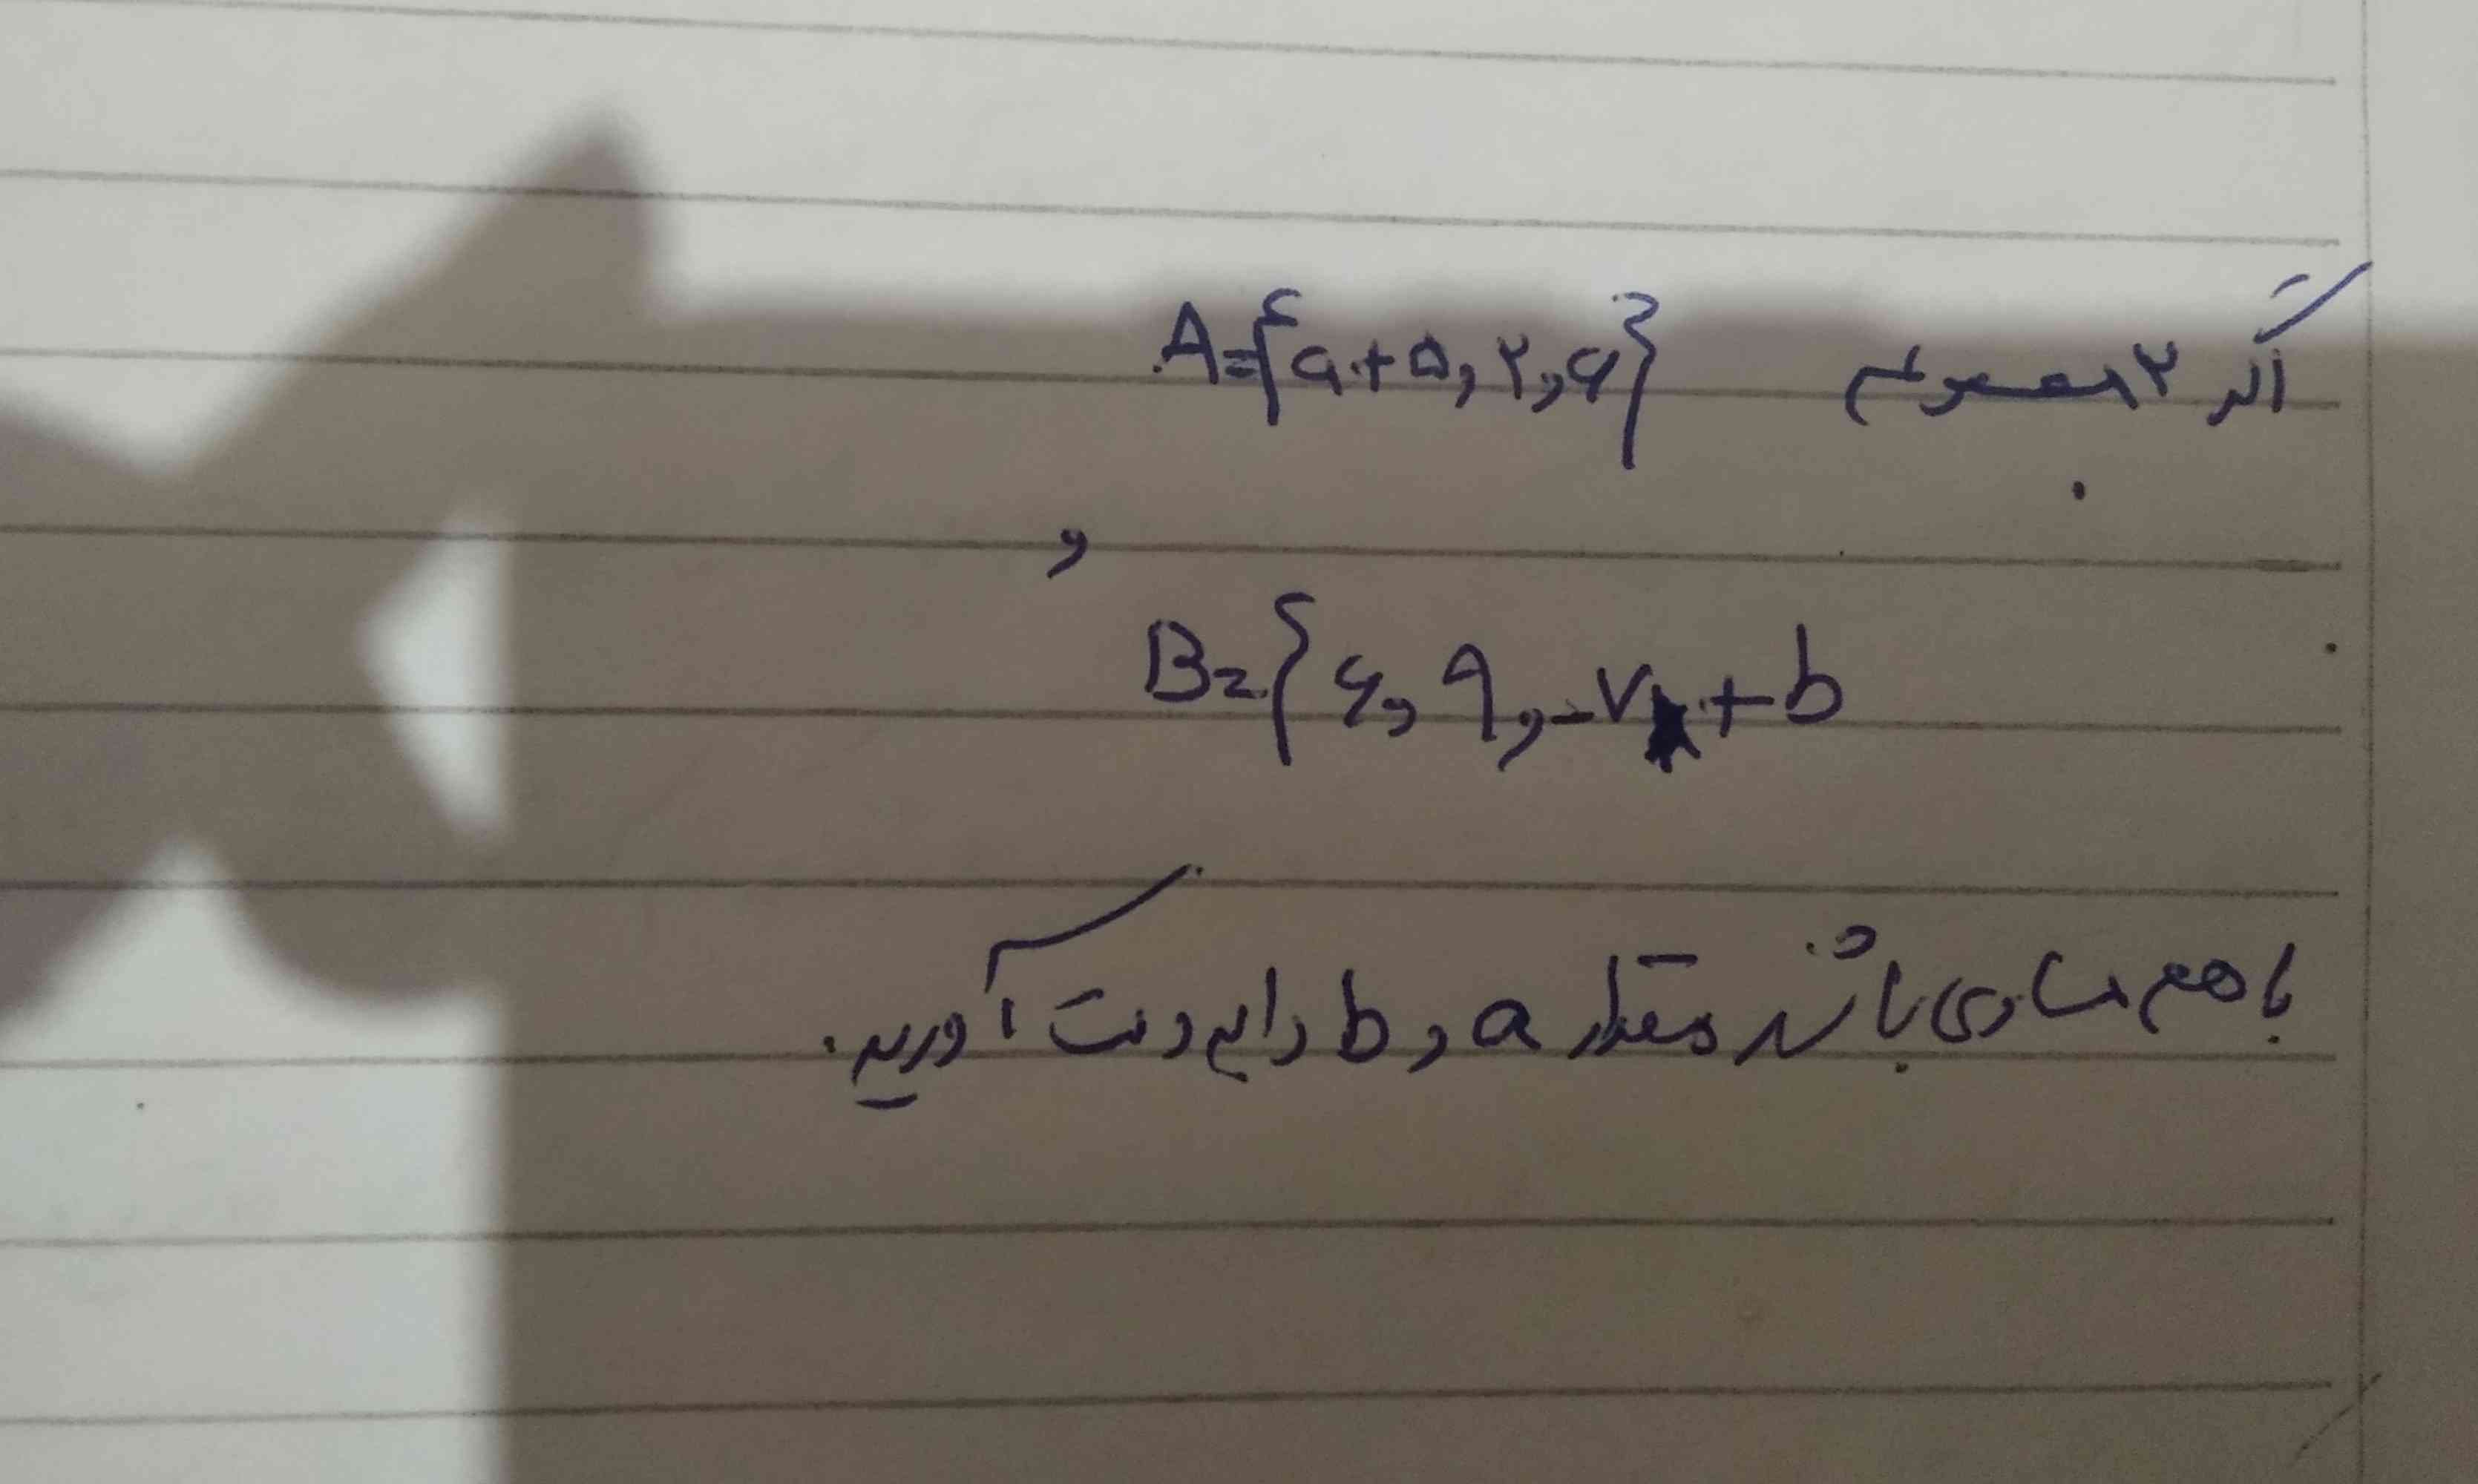 اگر ۲ مجموعه‌ی A={a+۵, ۲, ۹}
و
B={۶, ۹, -۷+b
با هم مساوی باشند مقدار a و b را به دست آورید.